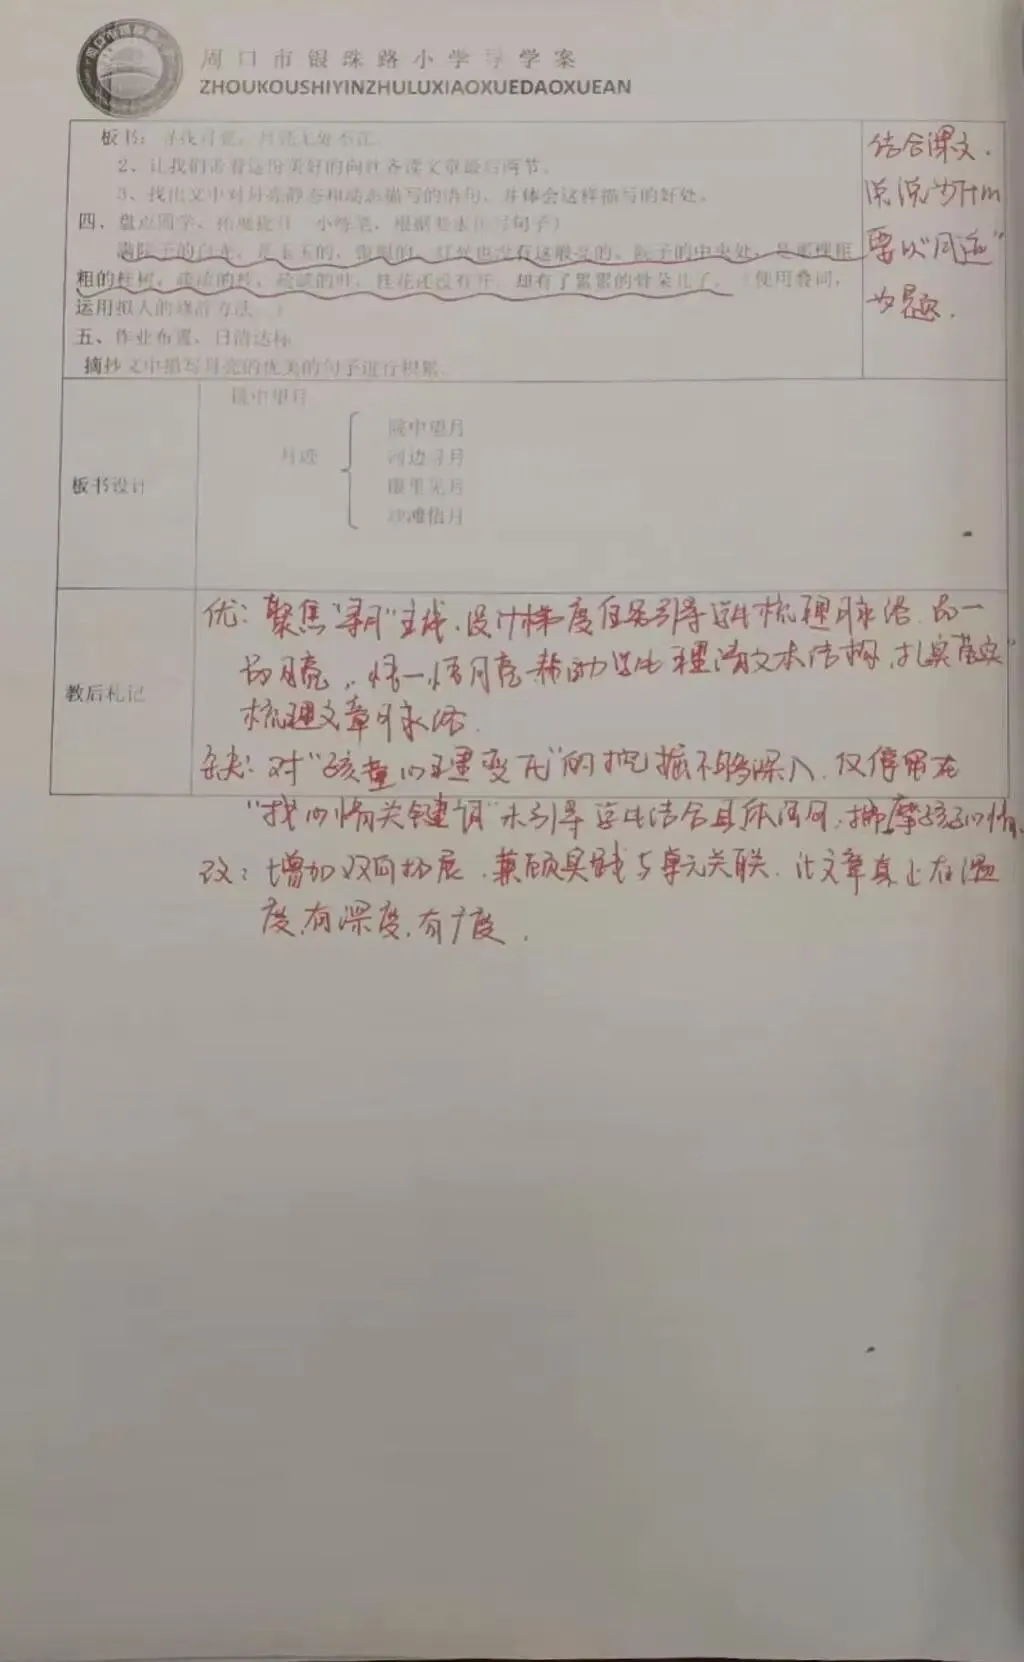 周口市银珠路小学导学案
ZHOUKOUSHIYINZHULUXIAOXUEDAOXUEAN
板书：寻找月亮，月亮无处不在。
2、让我们带着这份美好的向往齐读文章最后两节。
3、找出文中对月亮静态和动态描写的语句，并体会这样描写的好处。
四、盘点周学、拓展提升（小练笔，根据要求仿写句子）
满院子的白光，是玉玉的，银银的，灯光也没有这般亮的。院子的中央处，是那棵粗
粗的桂树，疏疏的枝，疏疏的叶，桂花还没有开，却有了累累的骨朵儿了。（使用叠词，
运用拟人的修辞方法。）
五、作业布置，日清达标
摘抄文中描写月亮的优美的句子进行积累。
结合课文，
说说为什么
要以"月迹"
为题.
板书设计
镜中望月
月迹
院中望月
河边寻月
眼里见月
沙滩悟月
教后札记
优：聚焦"寻月"主线，设计梯度任务引导学生梳理脉络，品一
品月亮，悟一悟月亮，帮助学生理清文本结构，扎实落实
梳理文章脉络.
缺：对"孩童心理变化"的挖掘不够深入，仅停留在
"找心情关键词"未引导学生结合具体语句，揣摩孩子心情
改：增加双向拓展，兼顾实践与单元关联，让文章真正有温
度，有深度，有广度.